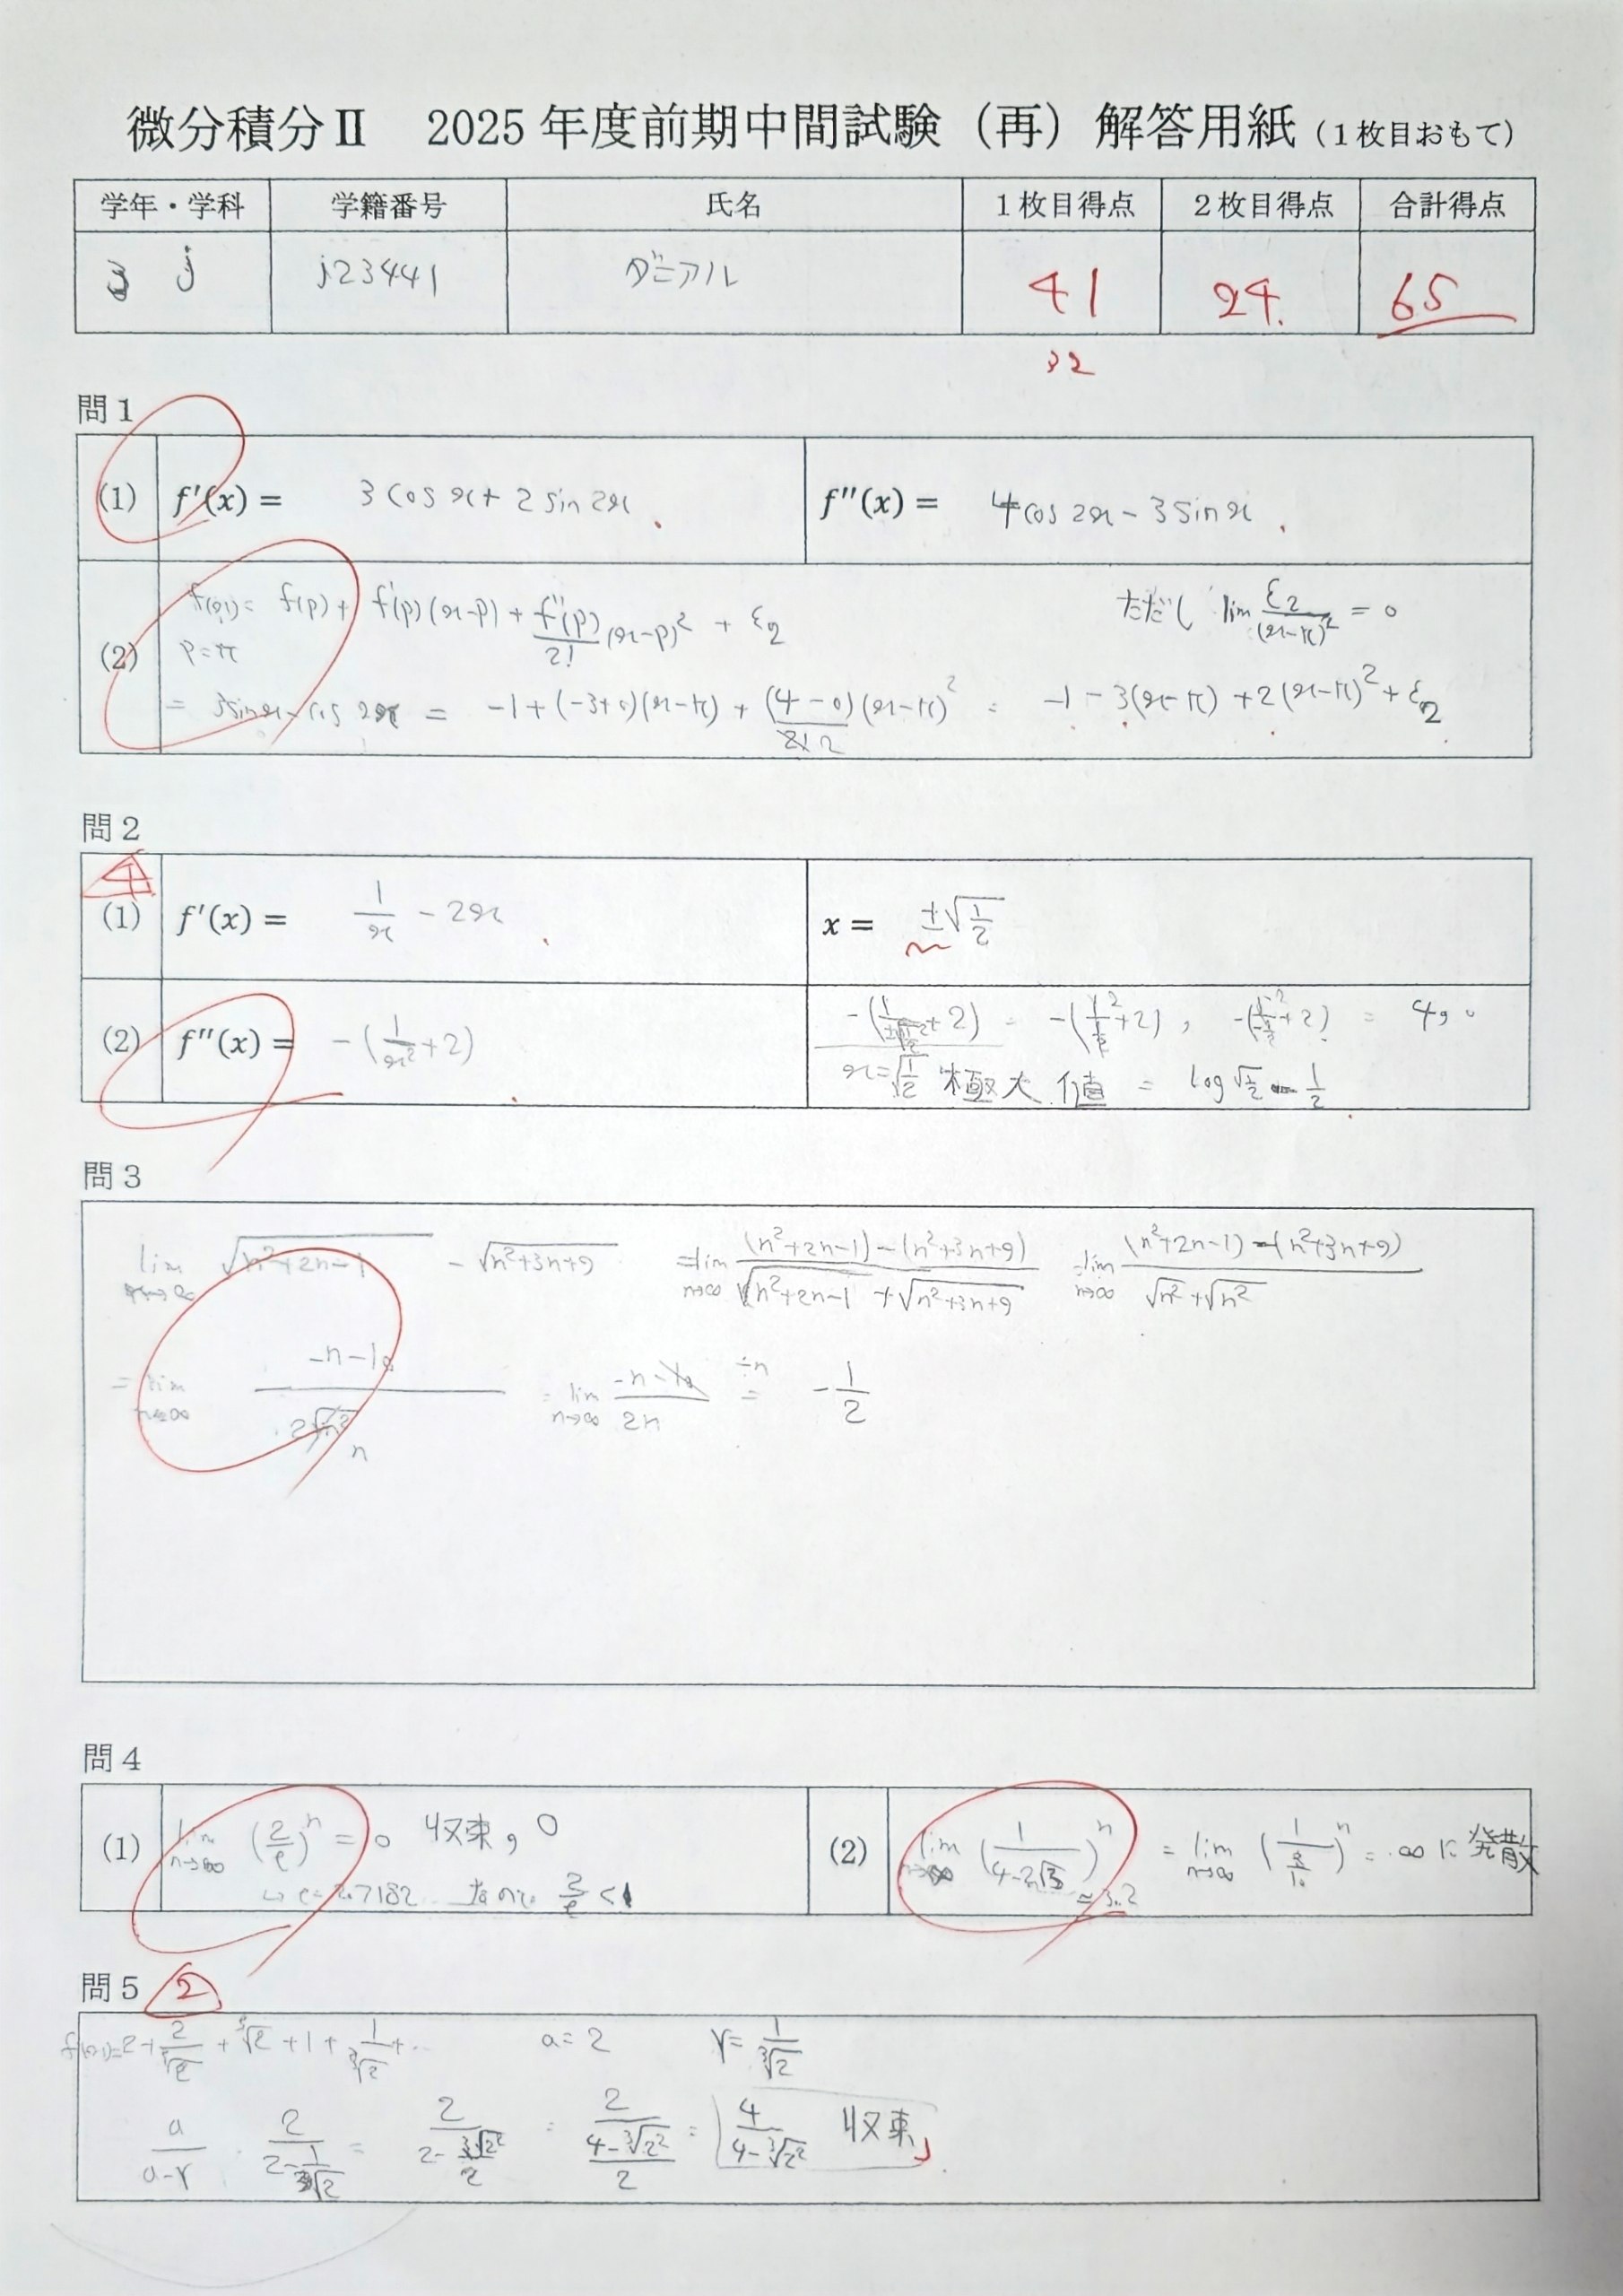 微分積分Ⅱ 2025年度前期中間試験（再）解答用紙（1枚目おもて）
学年・学科 学籍番号 氏名 1枚目得点 2枚目得点 合計得点
3 j j23441 ダニアル 41 24. 65
32
問1
(1) f'(x) = 3cos x + 2 sin 2x f''(x) = 4cos 2x - 3 sin x
f(x) = f(p) + f'(p)(x-p) + f''(p)/2! (x-p)² + ε₂ ただし lim ε₂/(x-π)² = 0
(2) p=π
= 3sin x - cos 2x = -1+(-3+0)(x-π) + (4-0)/2 (x-π)² = -1 - 3(x-π) + 2(x-π)² + ε₂
問2
4
(1) f'(x) = 1/x - 2x x = ±√(1/2)
(2) f''(x) = -(1/x² + 2)
x=√(1/2) 極大値 = log√(1/2) - 1/2
問3
lim n→∞ √(n²+2n-1) - √(n²+3n+9) = lim n→∞ ((n²+2n-1)-(n²+3n+9))/(√(n²+2n-1) + √(n²+3n+9)) = lim n→∞ ((n²+2n-1)-(n²+3n+9))/(√n²+√n²)
= lim n→∞ (-n-10)/(2√n²) n = lim n→∞ (-n-10)/2n ÷n = -1/2
問4
(1) lim n→∞ (2/e)ⁿ = 0 収束, 0
↳ e=2.7182 なので 2/e < 1
(2) lim n→∞ (1/(4-2√3))ⁿ = lim n→∞ ( )ⁿ = ∞に発散
問5 2
f(x)=2+2/∛2+∛2+1+1/∛2+… a=2 r=1/∛2
a/(a-r) 2/(2-1/∛2) = 2/(2-∛2²/2) = 2/((4-∛2²)/2) = 4/(4-∛2²) 収束